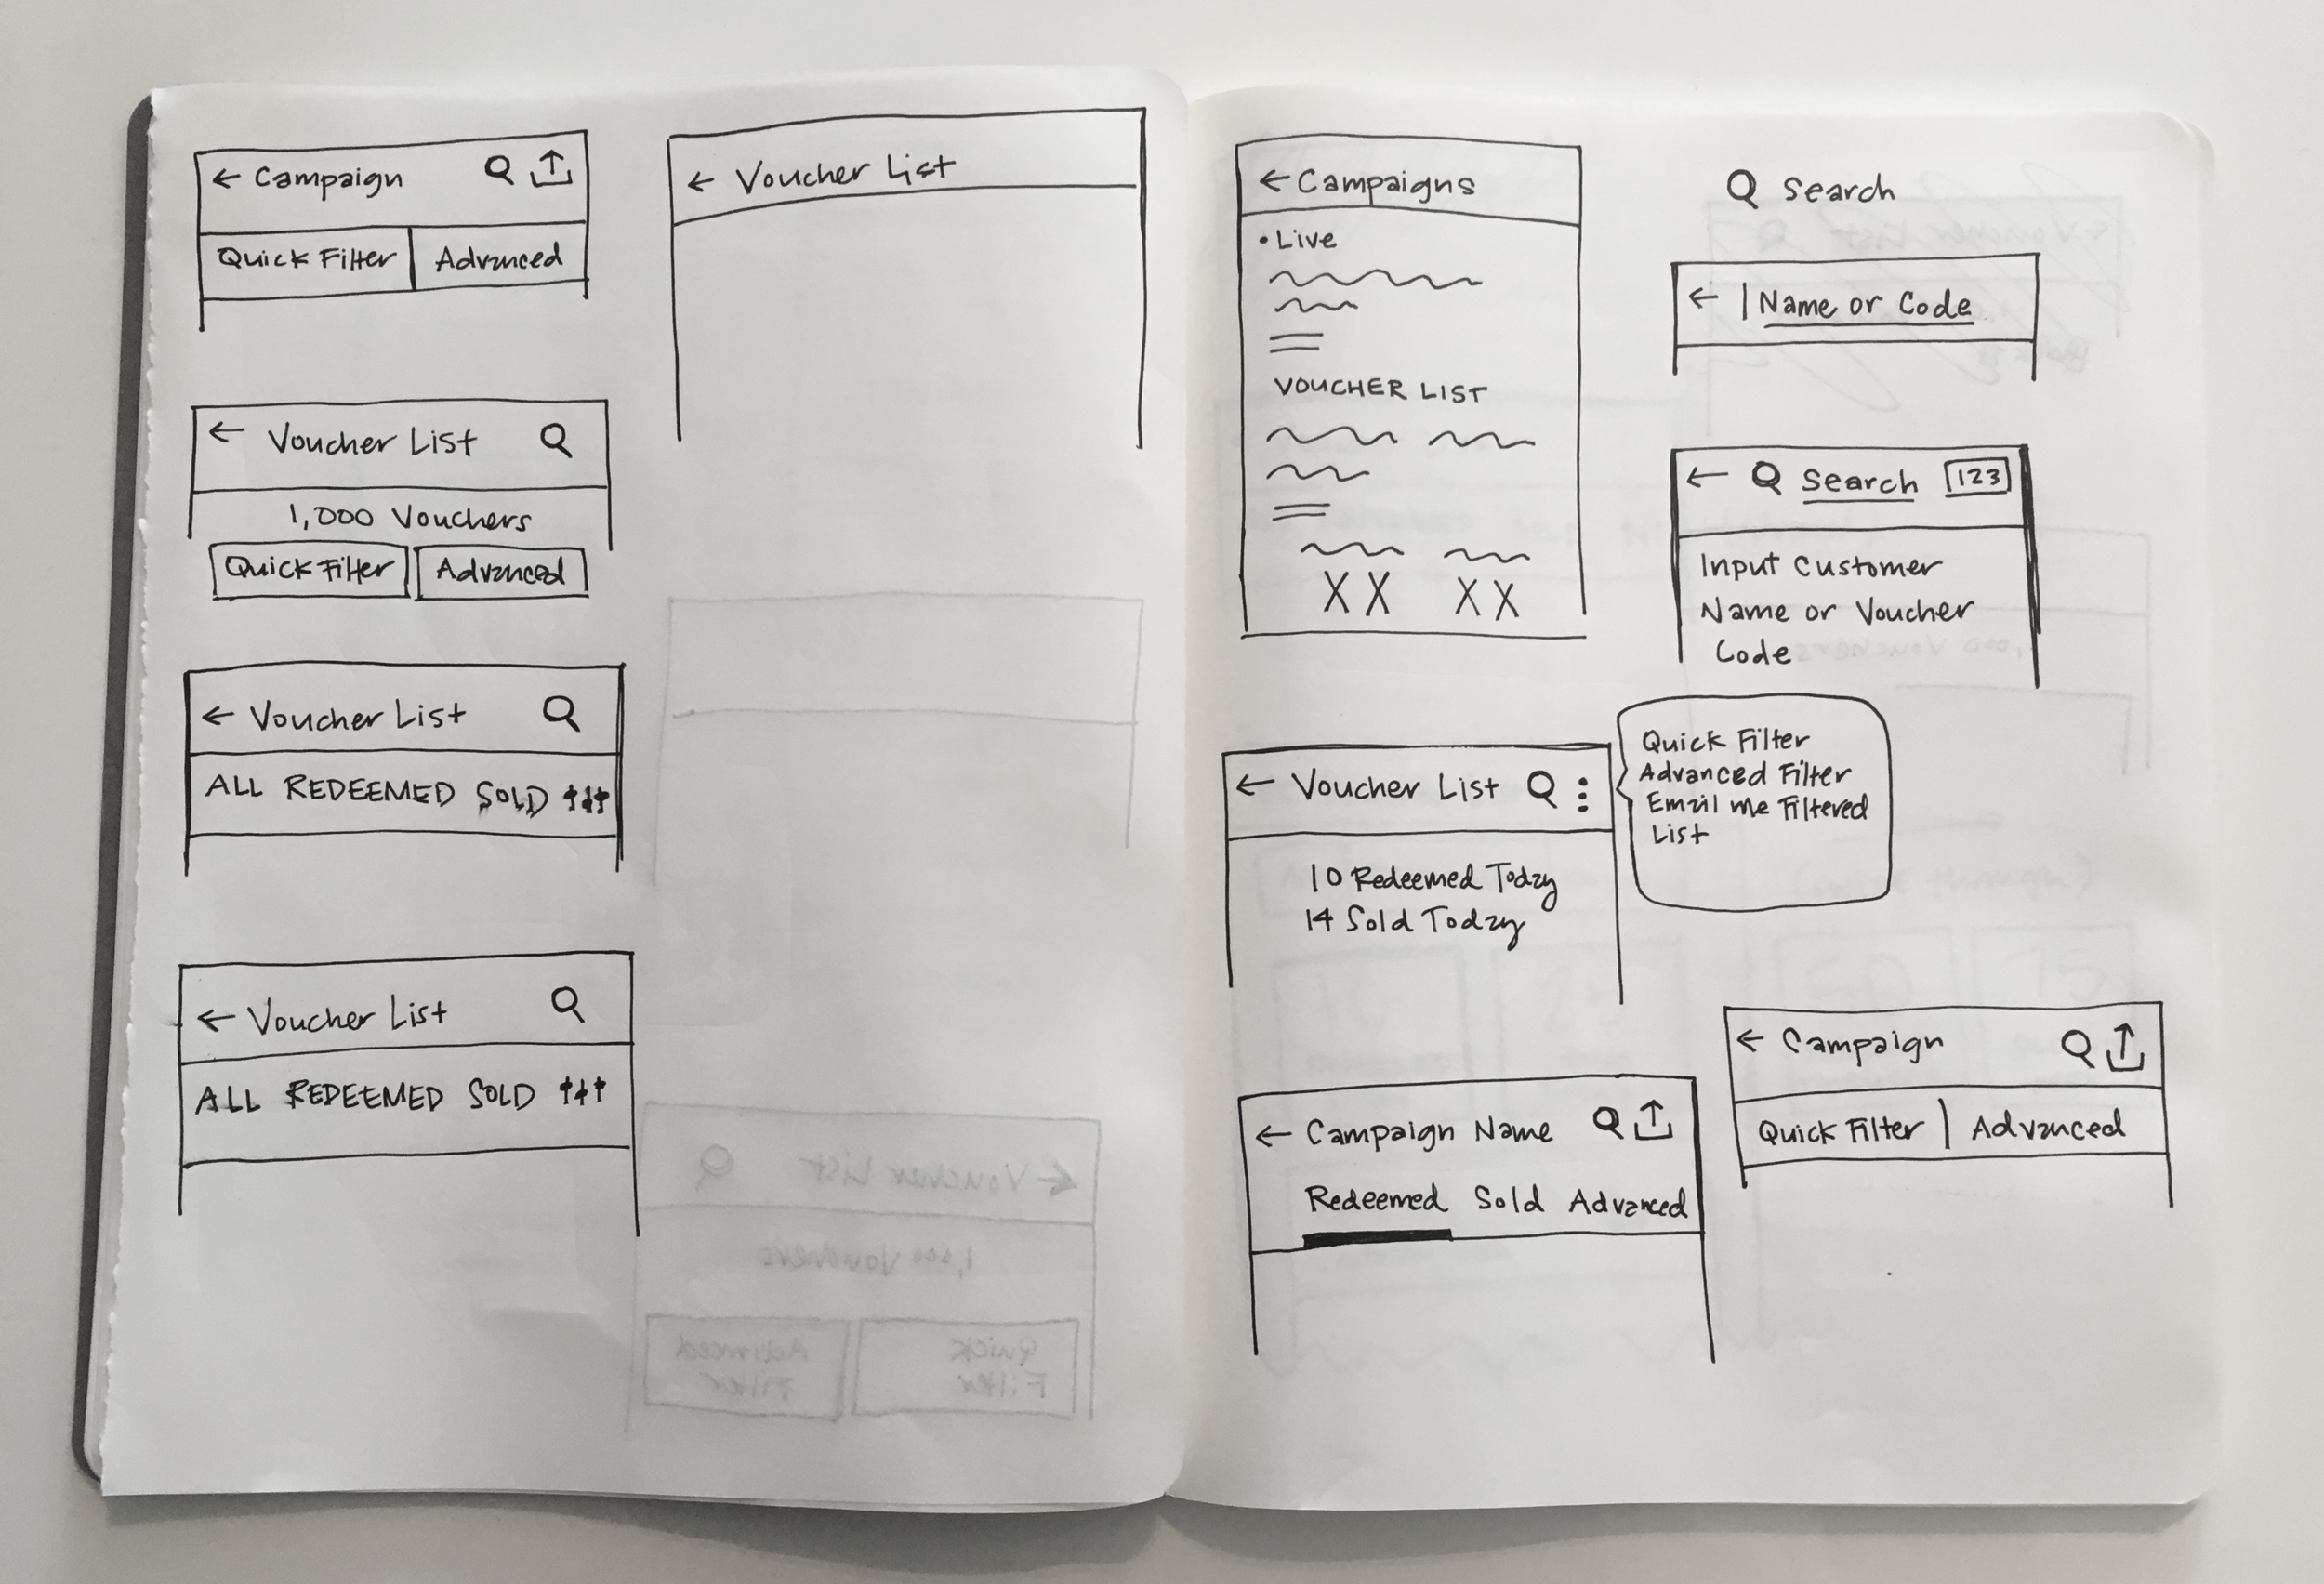 ← Campaign
Quick Filter Advanced
← Voucher List
1,000 Vouchers
Quick Filter Advanced
← Voucher List
ALL REDEEMED SOLD
← Voucher List
ALL REDEEMED SOLD
← Voucher List
← Campaigns
• Live
VOUCHER LIST
XX XX
Search
← |Name or Code
← Search 123
Input Customer
Name or Voucher
Code
← Voucher List
10 Redeemed Today
14 Sold Today
Quick Filter
Advanced Filter
Email me Filtered
List
← Campaign Name
Redeemed Sold Advanced
← Campaign
Quick Filter | Advanced
← Voucher List
1,000 Vouchers
Quick
Filter
Advanced
Filter